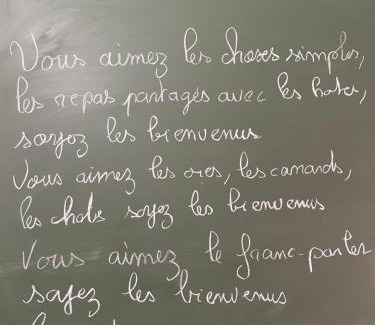 Vous aimez les choses simples,
les repas partagés avec les hotes,
soyez les bienvenus
Vous aimez les oies, les canards,
les chats soyez les bienvenus
Vous aimez le franc-parler
soyez les bienvenus